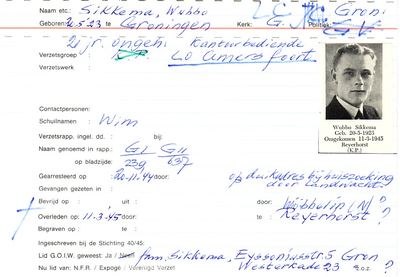 Naam etc: Sikkema, Wubbo
Geboren: 20.5.23 te Groningen Kerk: G. Politiek:
Gron
21 jr. ongeh. Kantoorbediende
Verzetsgroep : LO Amersfoort
Verzetswerk :
Contactpersonen:
Schuilnamen : Wim
Wubbo Sikkema
Geb. 20-5-1923
Omgekomen 11-3-1945
Reyerhorst
(K.P.)
Verzetsrapp. ingel. dd. : bij:
Naam genoemd in rapp.: GI GII
op bladzijde: 239 637
Gearresteerd op : 20-11-'44 door: op duikadres bij huiszoeking
door Landwacht
Gevangen gezeten in :
Bevrijd op : uit : door: Wöbbelin (N) ?
Overleden op : 11-3-'45 door: te Reyerhorst ?
Begraven op : te :
Ingeschreven bij de Stichting 40/45:
Lid G.O.I.W. geweest: Ja / Neen fam. Sikkema, Eyssoniusstr. 5 Gron
Nu lid van : N.F.R. / Expoge / Verenigd Verzet Westerkade 23 ?